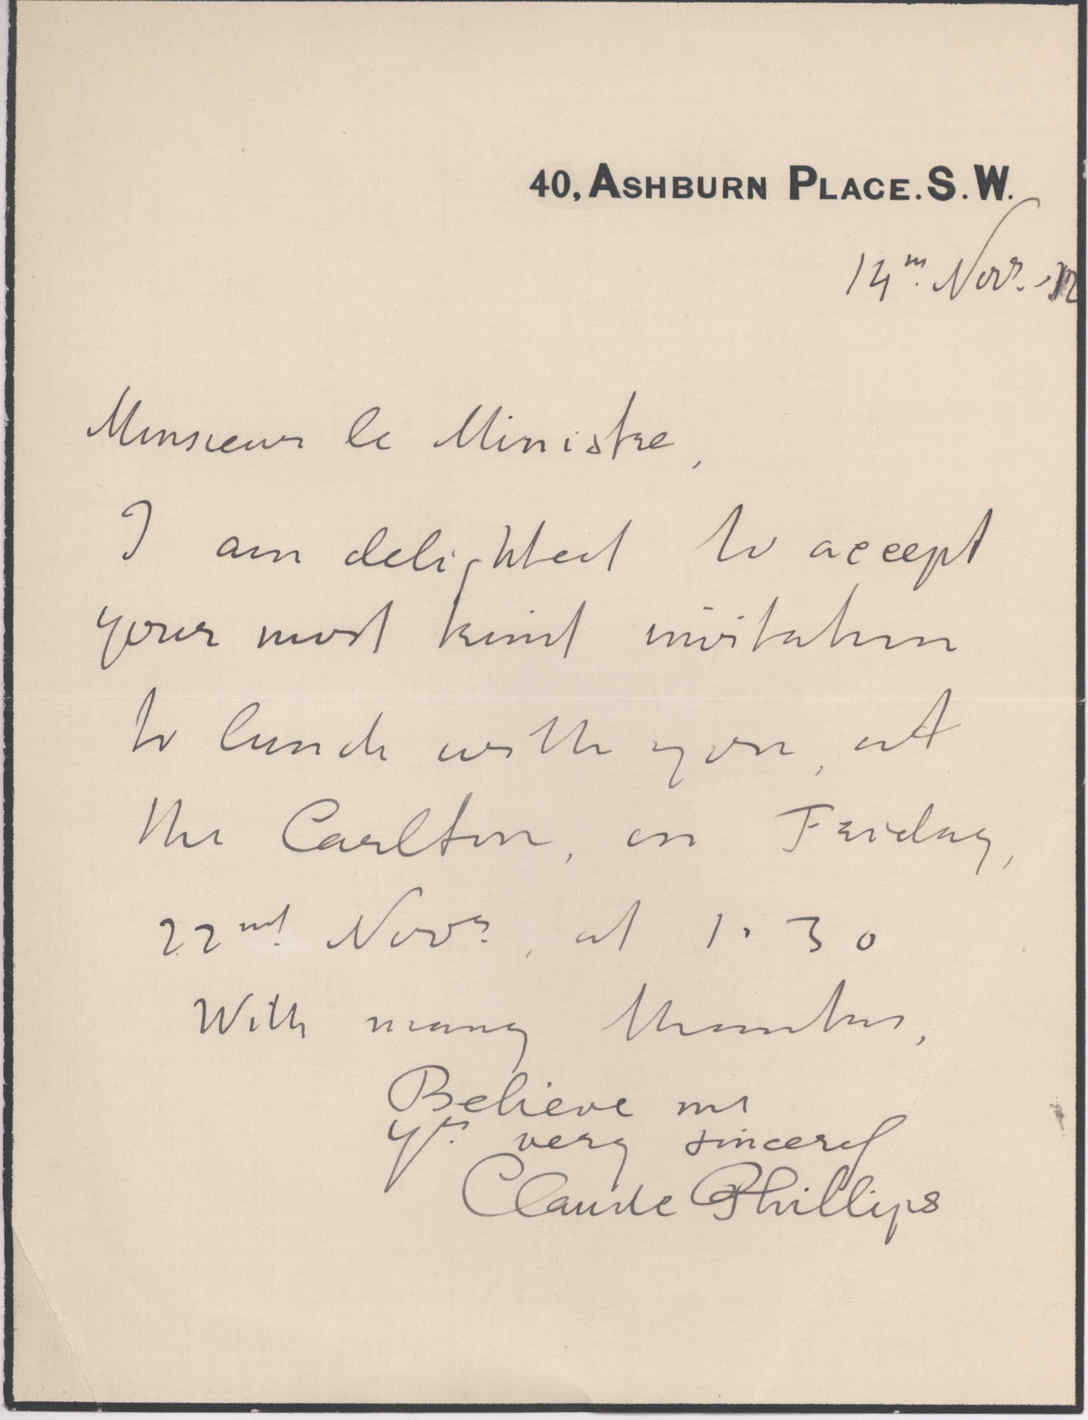 40, ASHBURN PLACE. S. W.
14th Novr. 12
Monsieur le Ministre,
I am delighted to accept
your most kind invitation
to lunch with you, at
the Carlton, on Friday,
22nd Novr., at 1.30
With many thanks,
Believe me
Yrs. very sincerely
Claude Phillips